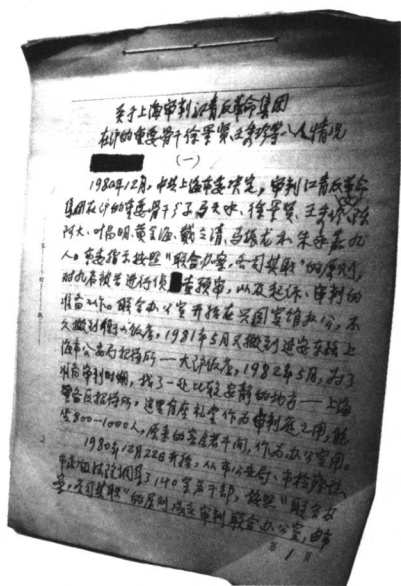 关于上海审判江青反革命集团
在沪的重要骨干徐景贤、王秀珍等八人情况
(一)
1980年12月,中共上海市委决定,审判江青反革命
集团在沪的重要骨干分子马天水、徐景贤、王秀珍、陈
阿大、叶昌明、黄金海、戴立清、马振龙和朱永嘉九
人。市委指示按照“联合办案,各司其职”的原则,
对九名被告进行侦查预审,以及起诉、审判的
准备工作。联合办公室开始在兴国宾馆办公,不
久搬到衡山饭店,1981年5月又搬到延安东路上
海市公安局招待所——大沪饭店,1982年5月,为了
准备审判时期,找了一处比较安静的地方——上海
警备区招待所,这里有座礼堂作为审判庭之用,能
坐800-1000人,原来的客房若干间,作为办公室用。
1980年12月22日开始,从市公安局、市检察院、
市高级法院调集了140余名干部,按照“联合办
案,各司其职”的原则成立审判联合办公室,由市
第1页